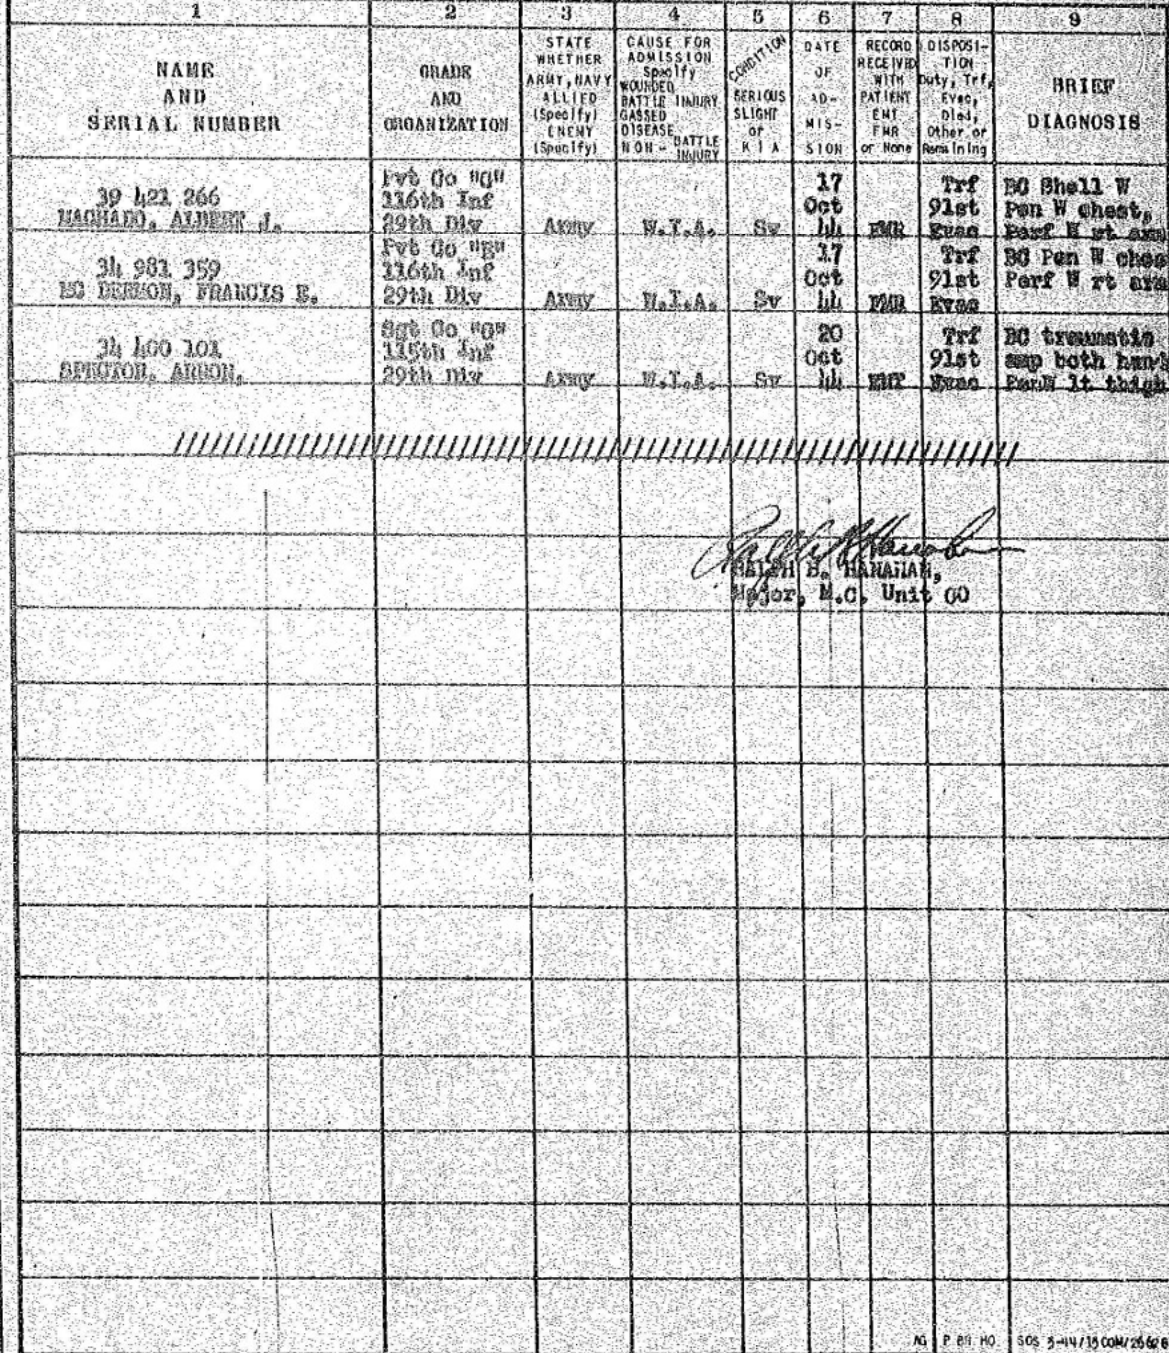 1 2 3 4 5 6 7 8 9
NAME
AND
SERIAL NUMBER
GRADE
AND
ORGANIZATION
STATE
WHETHER
ARMY, NAVY
ALLIED
(Specify)
ENEMY
(Specify)
CAUSE FOR
ADMISSION
Specify
WOUNDED
BATTLE INJURY
GASSED
DISEASE
NON - BATTLE
INJURY
CONDITION
SERIOUS
SLIGHT
or
K I A
DATE
OF
AD-
MIS-
SION
RECORD
RECEIVED
WITH
PATIENT
EMT
FMR
or None
DISPOSI-
TION
Duty, Trf,
Evac,
Died,
Other or
Remaining
BRIEF
DIAGNOSIS
39 421 266
MACHADO, ALBERT J.
Pvt Co "G"
116th Inf
29th Div
Army
W.I.A.
Sv
17
Oct
44
FMR
Trf
91st
Evac
BC Shell W
Pen W chest,
Perf W rt arm
34 981 359
MC DERMON, FRANCIS E.
Pvt Co
116th Inf
29th Div
Army
W.I.A.
Sv
17
Oct
44
FMR
Trf
91st
Evac
BC Pen W ches
Perf W rt arm
34 400 101
SPECTOR, 
Sgt Co "G"
115th Inf
29th Div
Army
W.I.A.
Sv
20
Oct
44
EMT
Trf
91st
Evac
BC traumatic
amp both han's
PenW lt thigh
RALPH B. HANAHAN,
Major, M.C. Unit CO